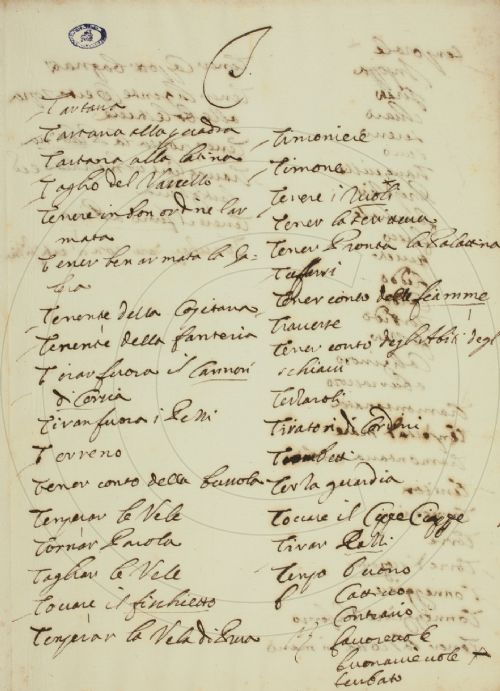 T.
Tartana
Tartana alla quadra
Tartana alla latina
Taglio del Vascello
Tenere in bon ordine l'ar
mata
Tener ben armata la
Tenente della Capitana
Tenente della fanteria
Tirar fuora il Cannon
di Corsia
Tirar fuora i
Terreno
Tener conto della bussola
Temperar le Vele
Tornar Parola
Tagliar le Vele
Toccare il fischietto
Temperar la Vela di Prua
Timoniere
Timone
Tenere i
Tener la
Tener Pronta la Palattina
Tener conto delle fiamme
Traverse
Tener conto degl'Abiti degl
schiavi
Terzaroli
Tiratori di Cordoni
Terza guardia
Toccare il
Tirar
Tempo buono
Cattivo
Contrario
favorevole
buonacievole
turbato